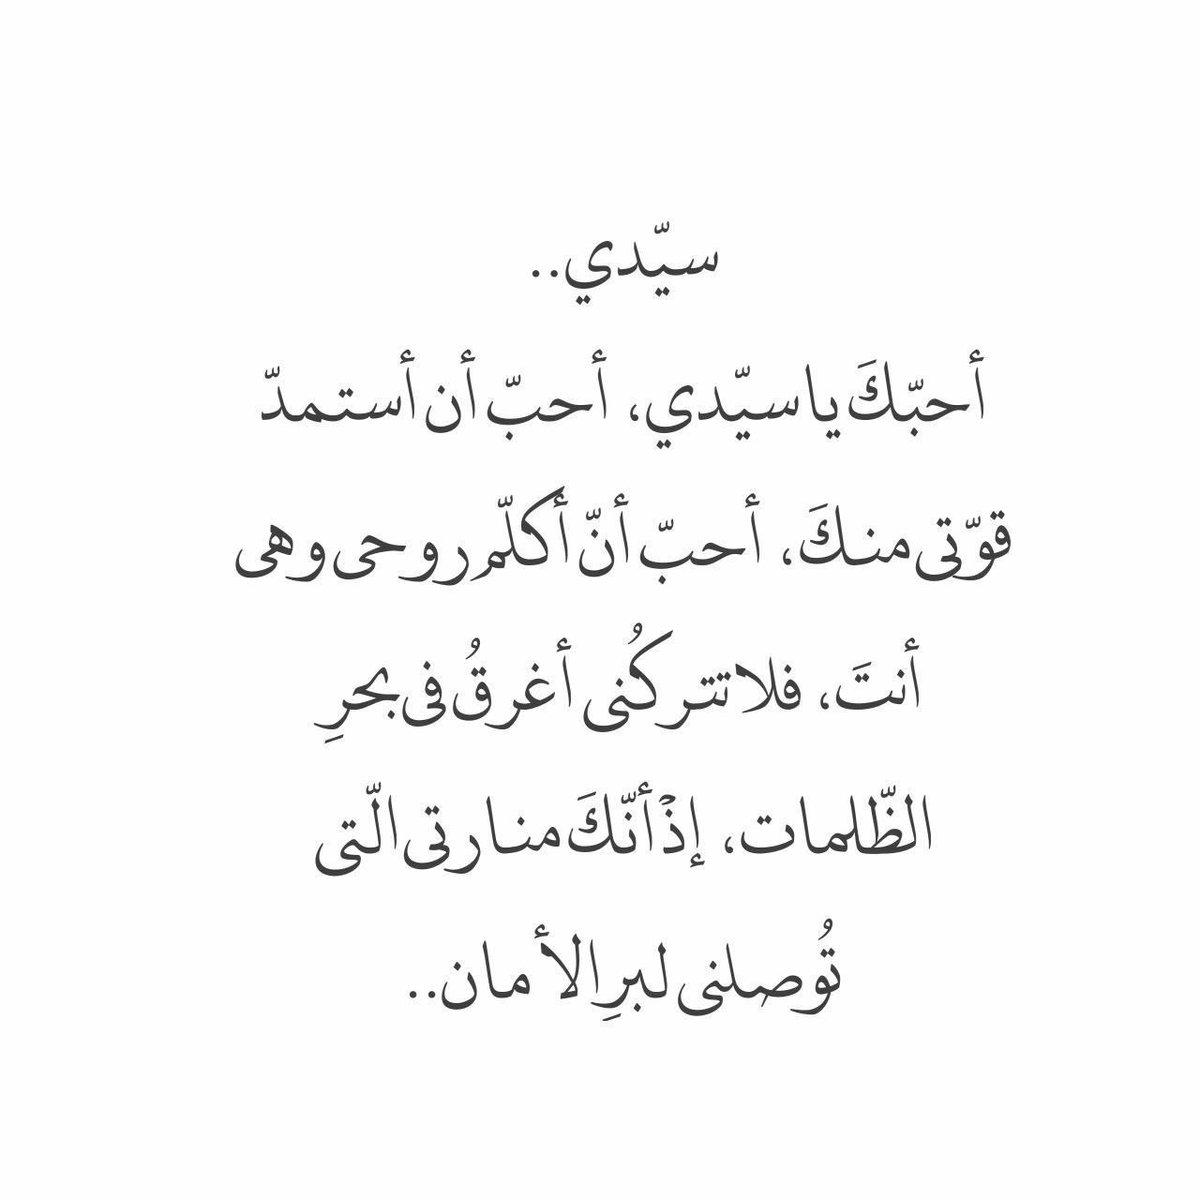 سيّدي..
أحبّكَ يا سيّدي، أحبّ أن أستمدّ
قوّتى منكَ، أحبّ أنّ أكلّم روحى وهى
أنتَ، فلا تتركُنى أغرقُ فى بحرِ
الظّلمات، إذْ أنّكَ منارتى الّتى
تُوصلنى لبرِ الأمان..